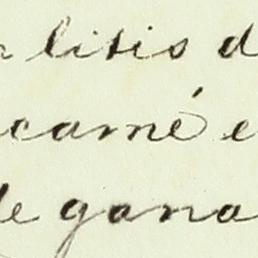 litis d
camé e
de gana